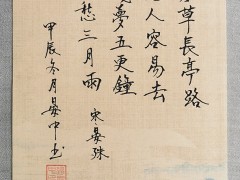 草長亭路
人容易去
夢五更鐘
愁三月雨
宋晏殊
甲辰冬月晏中书